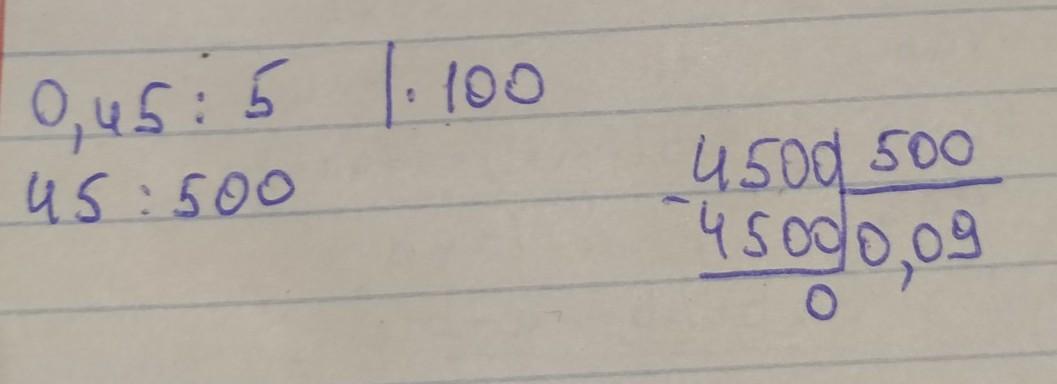 0,45 : 5 | · 100
45 : 500
4500 500
- 4500 0,09
0